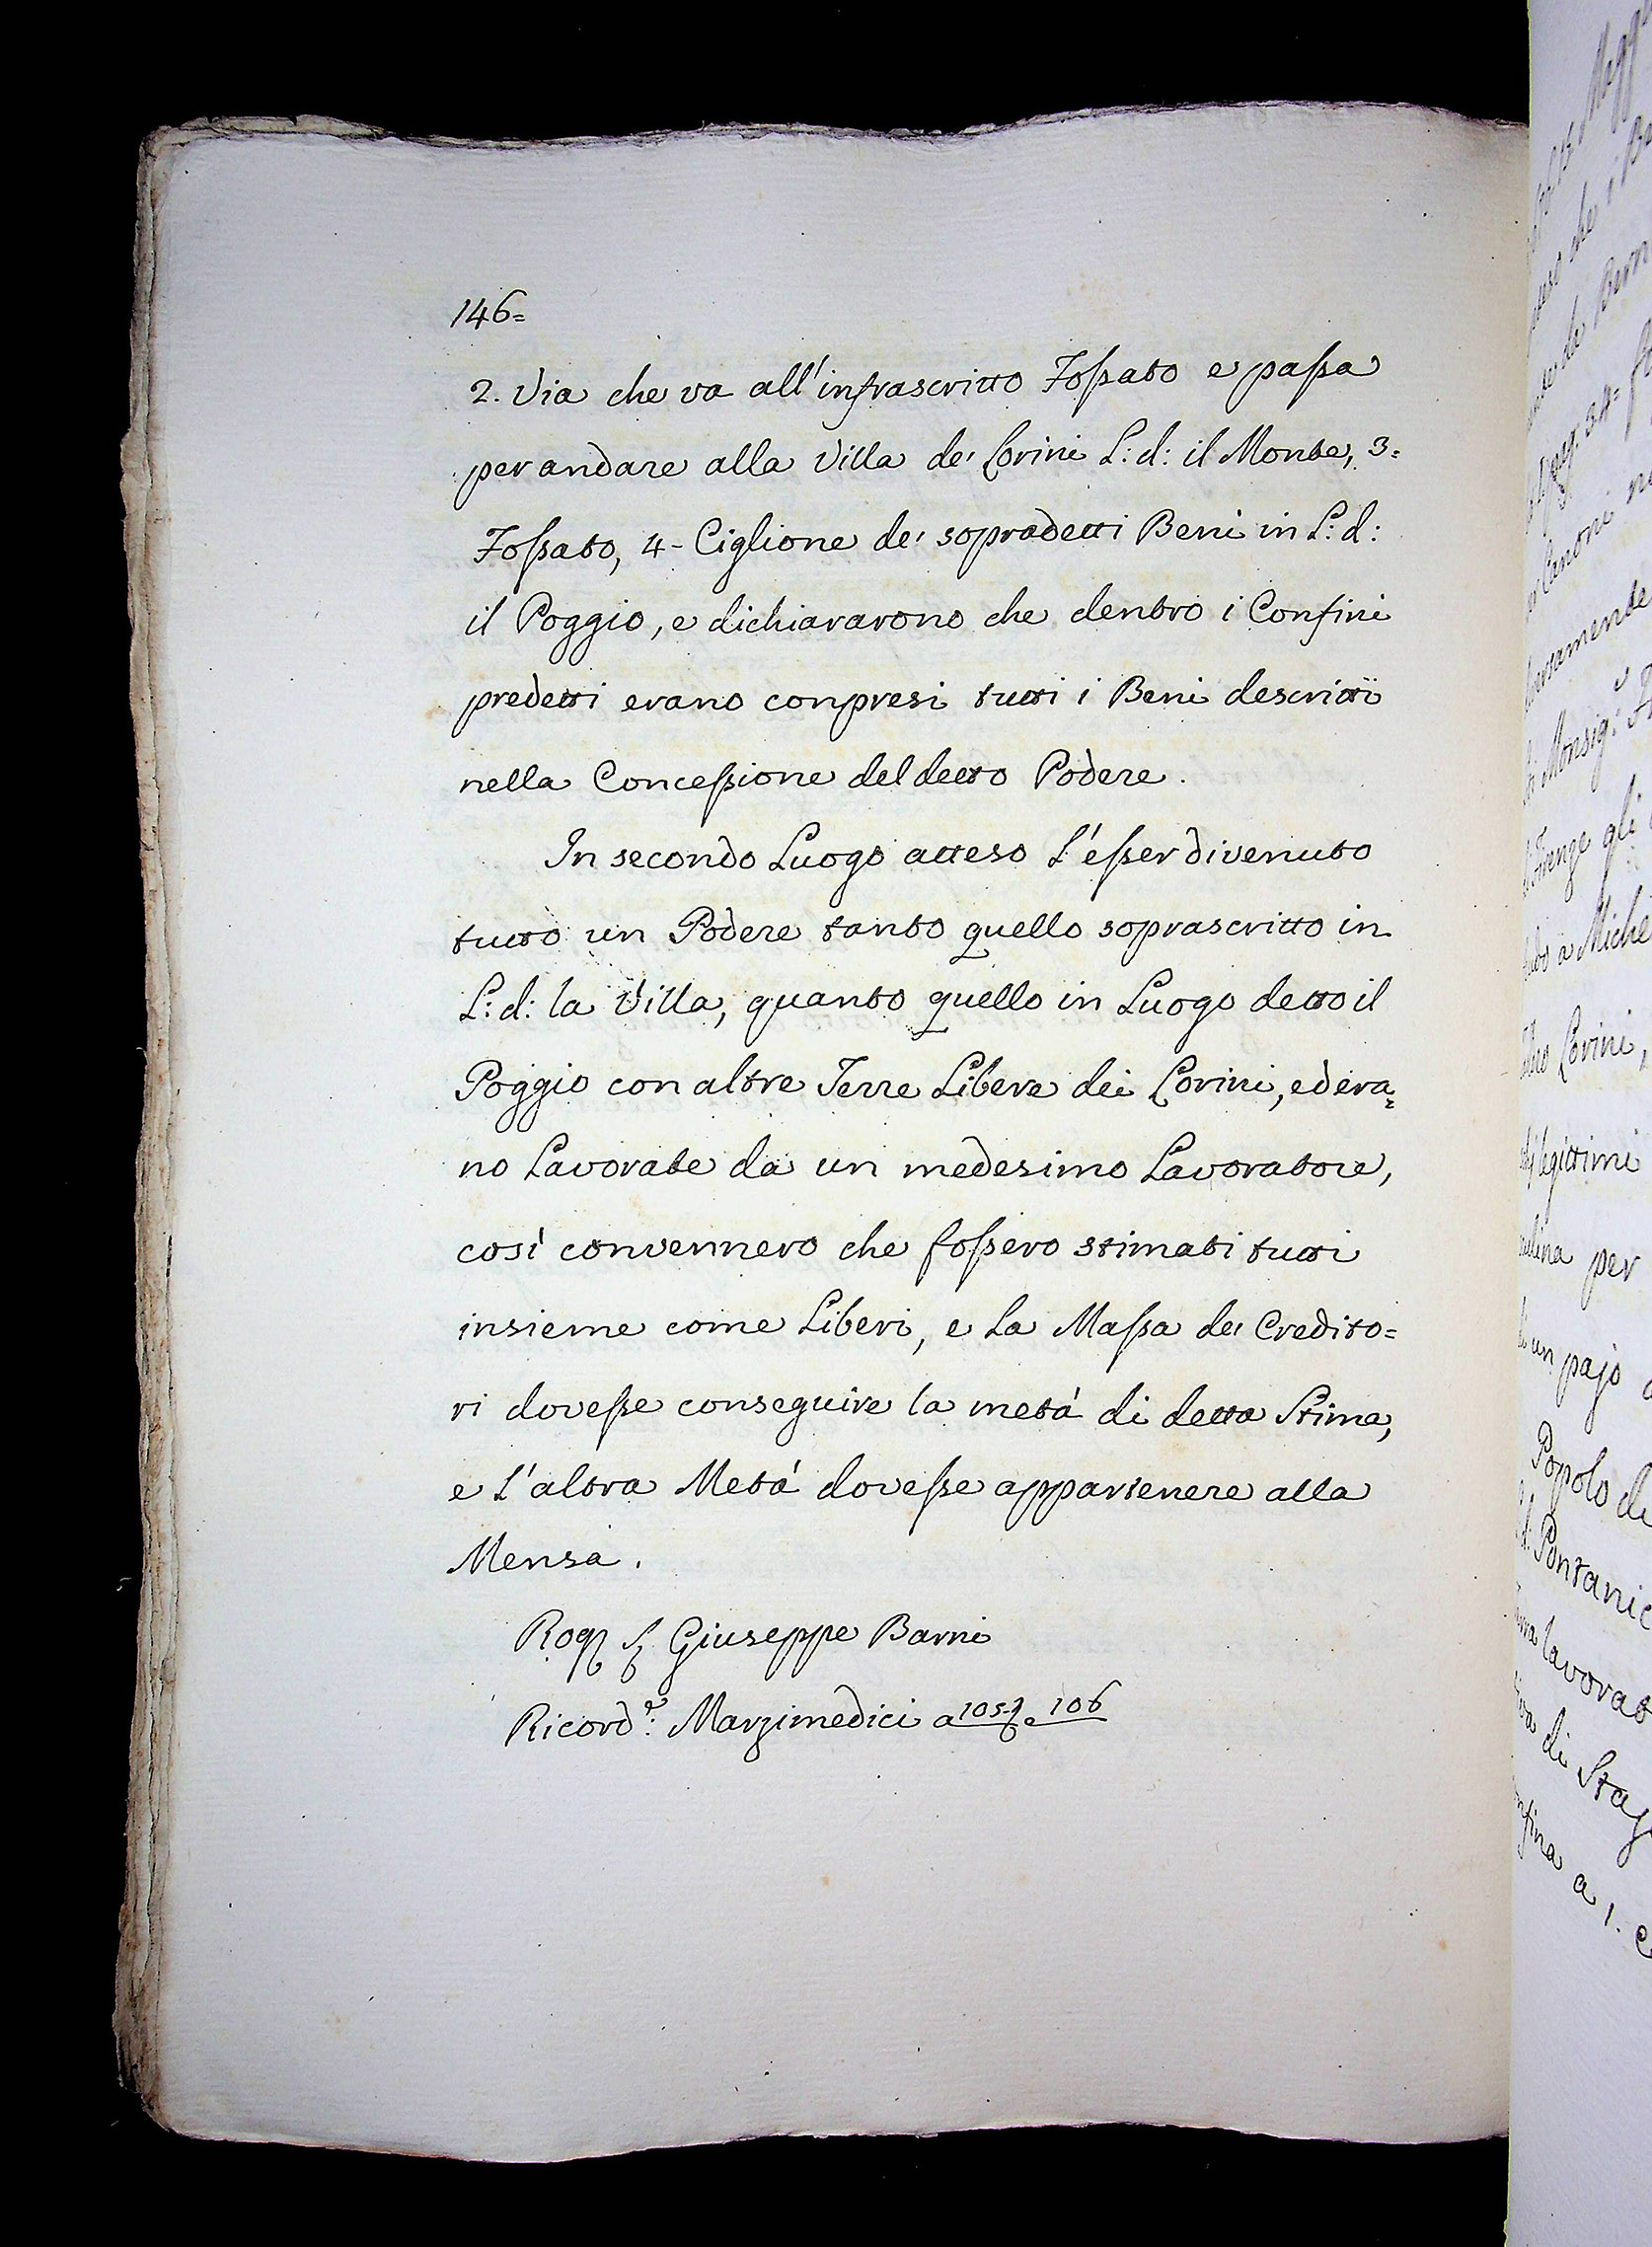 146=
2. Via che va all'infrascritto Fossato e passa
per andare alla Villa de' Corini L: d: il Monte, 3=
Fossato, 4- Ciglione de' sopradetti Beni in L: d:
il Poggio, e dichiararono che dentro i Confini
predetti erano conpresi tutti i Beni descritti
nella Concessione del detto Podere.
In secondo Luogo atteso L'esser divenuto
tutto un Podere tanto quello soprascritto in
L: d: la Villa, quanto quello in Luogo detto il
Poggio con altre Terre Libere dei Corini, ed era=
no Lavorate da un medesimo Lavoratore,
così convennero che fossero stimati tutti
insieme come Liberi, e La Massa de' Credito=
ri dovesse conseguire la metá di detta Stima,
e L'altra Metá dovesse appartenere alla
Mensa.
Rog Giuseppe Barni
Ricord.e Marzimedici a 105 e 106
che i
da Bern
pag. 34=
Canoni
Monsig:
Firenze gli
a Miche
Corini,
legittimi
per
un pajo
Popolo di
lavorat
di Stag
a 1. C